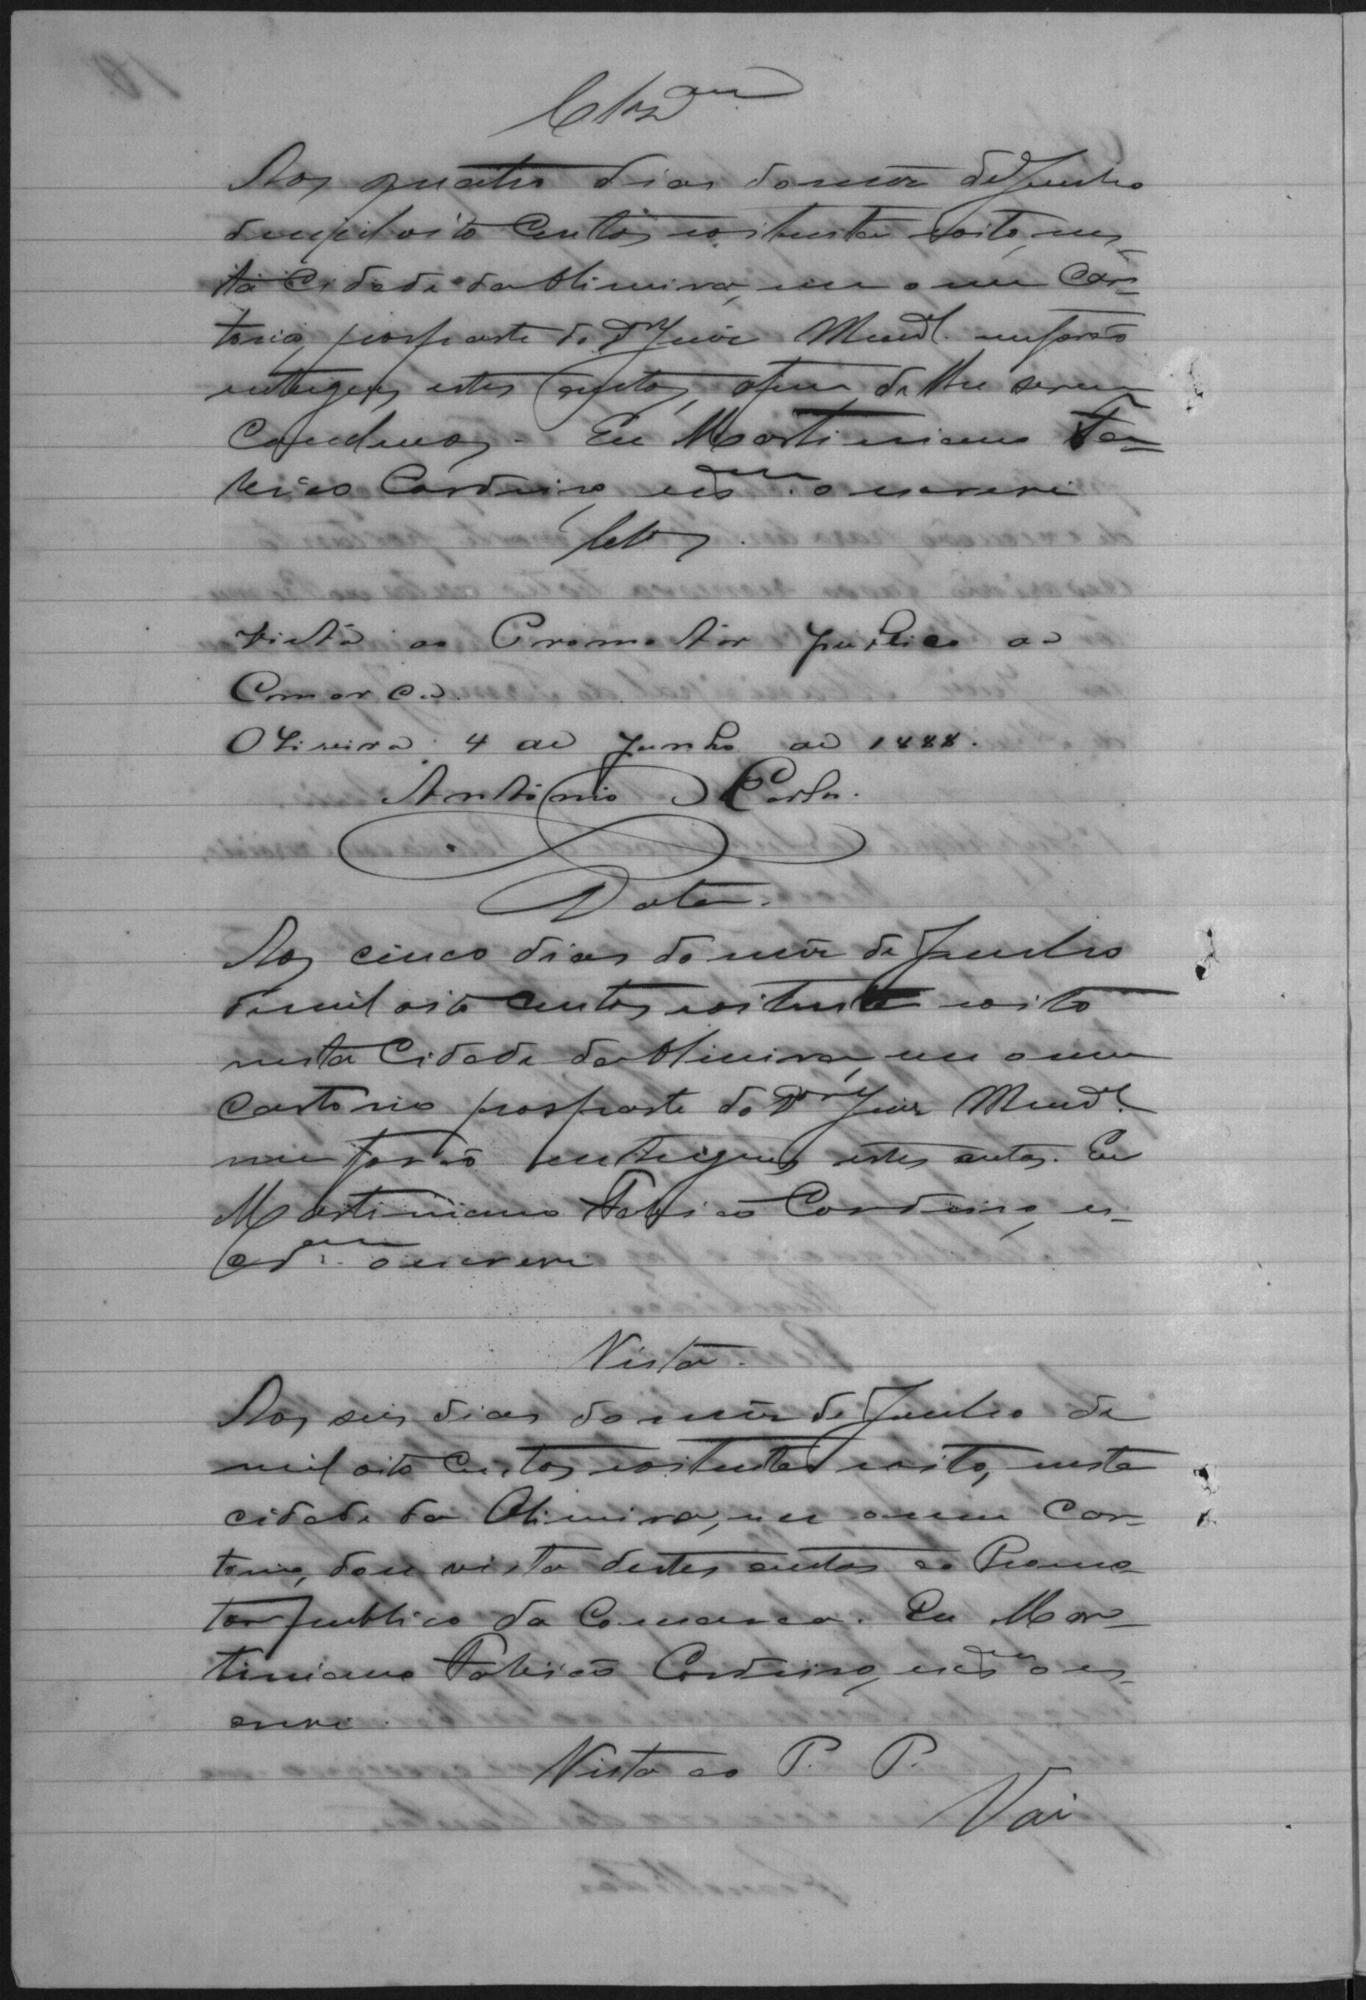 Clzam
Aos quatro dias do mez de Junho
de mil oito centos e oitenta e oito, nes-
ta Cidade da Oliveira, em o meu Car-
torio, por parte do Dr Juiz Mun.al me forão
entregues estes autos, afim de lhe serem
Concluzos. Eu Martiniano Fa-
bricio Cordeiro, escram o escrevi
Clos.
Vista ao Promotor publico da
Comarca.
Oliveira, 4 de Junho de 1888.
Antonio
Data.
Aos cinco dias do mez de Junho
de mil oito centos e oitenta e oito
nesta Cidade da Oliveira, em o meu
Cartorio por parte do Dor Juiz Mun.al
me forão entregues estes autos. Eu
Martiniano Fabricio Cordeiro, es-
cram o escrevi
Vista.
Aos seis dias do mez de Junho de
mil oito centos e oitenta e oito, nesta
cidade da Oliveira, em o meu Car-
torio, dou vista destes autos ao Promo-
tor publico da Comarca. Eu Mar-
tiniano Fabricio Cordeiro, escram o es-
crevi.
Vista ao P. P.
Vai